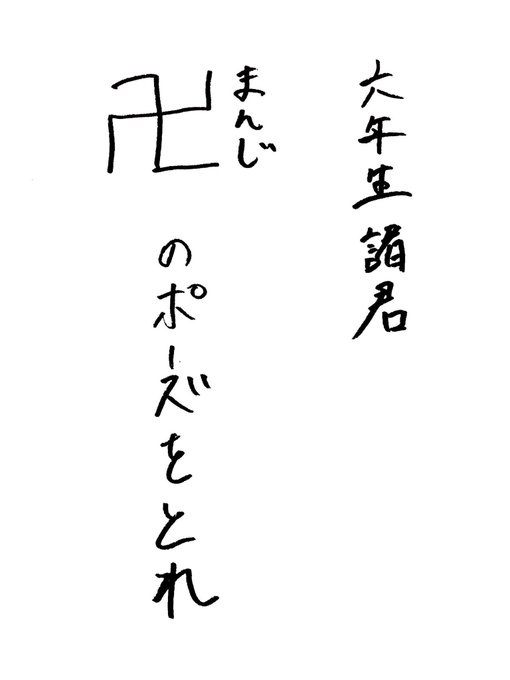 六年生諸君
卍
まんじ
のポーズをとれ